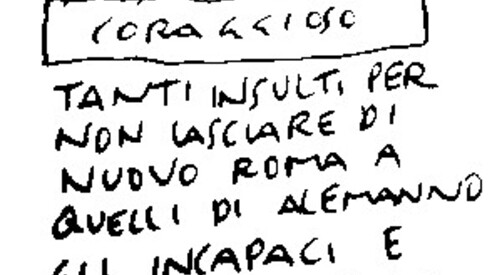 CORAGGIOSO
TANTI INSULTI PER
NON LASCIARE DI
NUOVO ROMA A
QUELLI DI ALEMANNO
GLI INCAPACI E